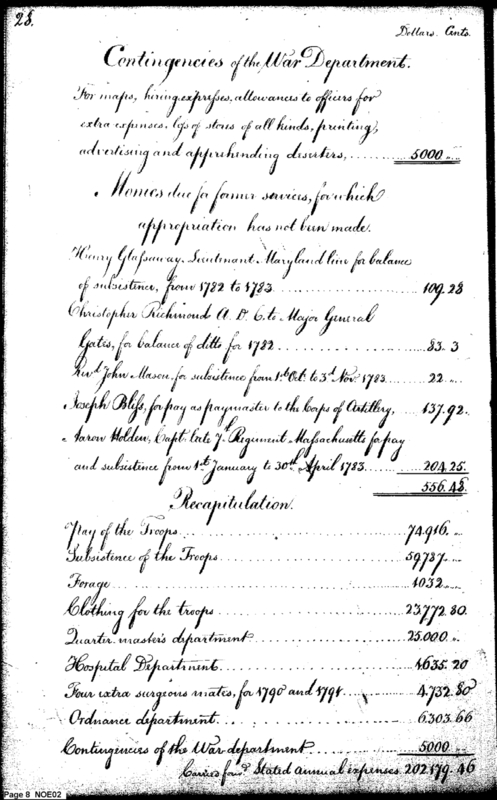 28.
Dollars. Cents.
Contingencies of the War Department.
For maps, hiring expresses, allowances to officers for
extra expenses, loss of stores of all kinds, printing,
advertising and apprehending deserters, 5000 "
Monies due for former services, for which
appropriation has not been made.
Henry Glassaway. Lieutenant. Maryland line for balance
of subsistence, from 1782 to 1783 109.28
Christopher Richmond A. D. C. to Major General
Gates, for balance of ditto for 1782 83. 3
Revd. John Mason. for subsistence from 1st Oct. to 3d. Nov. 1783 22 "
Joseph Bliss, for pay as paymaster to the Corps of Artillery, 137.92.
Aaron Holden, Capt. late 7th. Regiment Massachusetts for pay
and subsistence from 1st January to 30th April 1783 204.25.
556.48.
Recapitulation.
Pay of the Troops 74,916. "
Subsistence of the Troops 59,737. "
Forage 4032 "
Clothing for the troops 23,772.80
Quarter master's department 25.000 "
Hospital Department 4635.20
Four extra surgeons mates, for 1790 and 1791 4,732.80
Ordnance department 6.303.66
Contingencies of the War department 5000 "
Carried ford. Stated annual expenses. 202,179.46
Page 8 NOE02